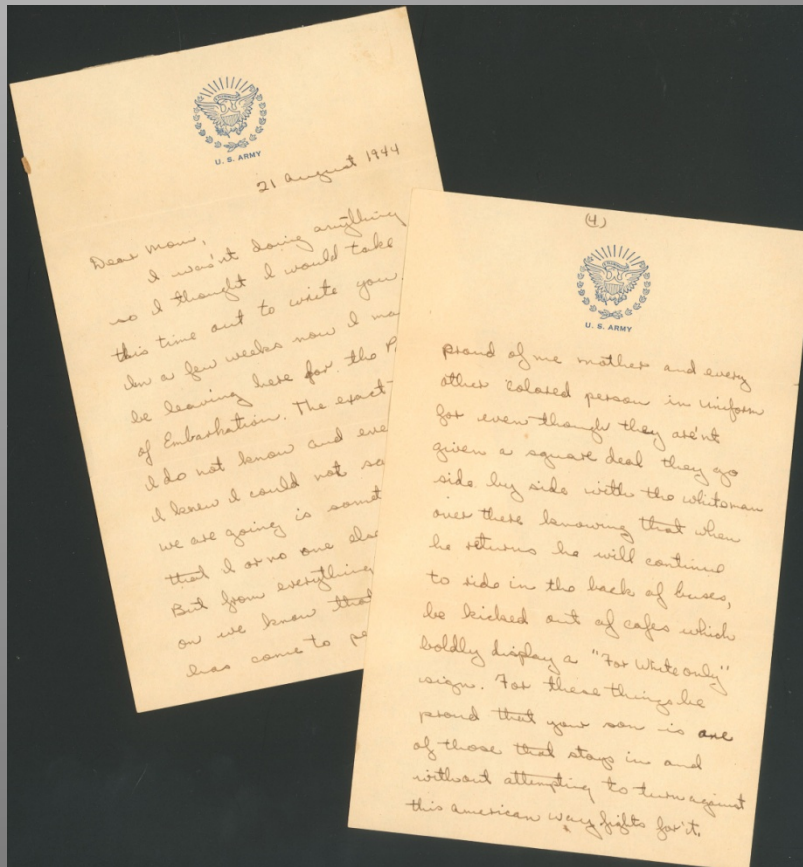 U. S. ARMY
21 August 1944
Dear Mom,
I was'nt doing anything
so I thought I would take
this time out to write you.
In a few weeks now I
be leaving here for the
of Embarkation. The exact
I do not know and
I knew I could not
we are going is
that I or no one else
But from everything
on we know that
has come to
(4)
U. S. ARMY
proud of me mother and every
other colored person in uniform
for even though they are'nt
given a square deal they go
side by side with the whiteman
over there knowing that when
he returns he will continue
to ride in the back of buses,
be kicked out of cafes which
boldly display a "For White only"
sign. For these things be
proud that your son is one
of those that stays in and
without attempting to turn against
this american way fights for it.